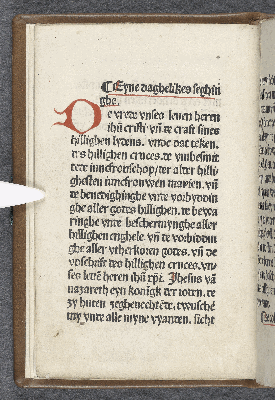 ¶ Eyne daghelikes seghin
ghe.
De vrede vnses leuen heren
ihũ cristi vñ de craft sines
hillighen lydens. vnde dat teken
des hillighen cruces. de vmbesmit
tede iuncfrouschop der alder hilli
ghesten iuncfrouwen marien. vñ
de benedighinghe vnde vorbyddin
ghe aller godes hillighen. de bewa
ringhe vnde beschermynghe aller
hillighen enghele. vñ de vorbiddin
ghe aller vtherkoren godes. vñ de
vodschrift des hillighen cruces. vn
ses leuẽ heren ihũ xp̃i. Jhesus vã
nazareth eyn konigk der ioden. de
zy huten zeghenechtede. twusschẽ
my vnde alle myne vyanden. sicht